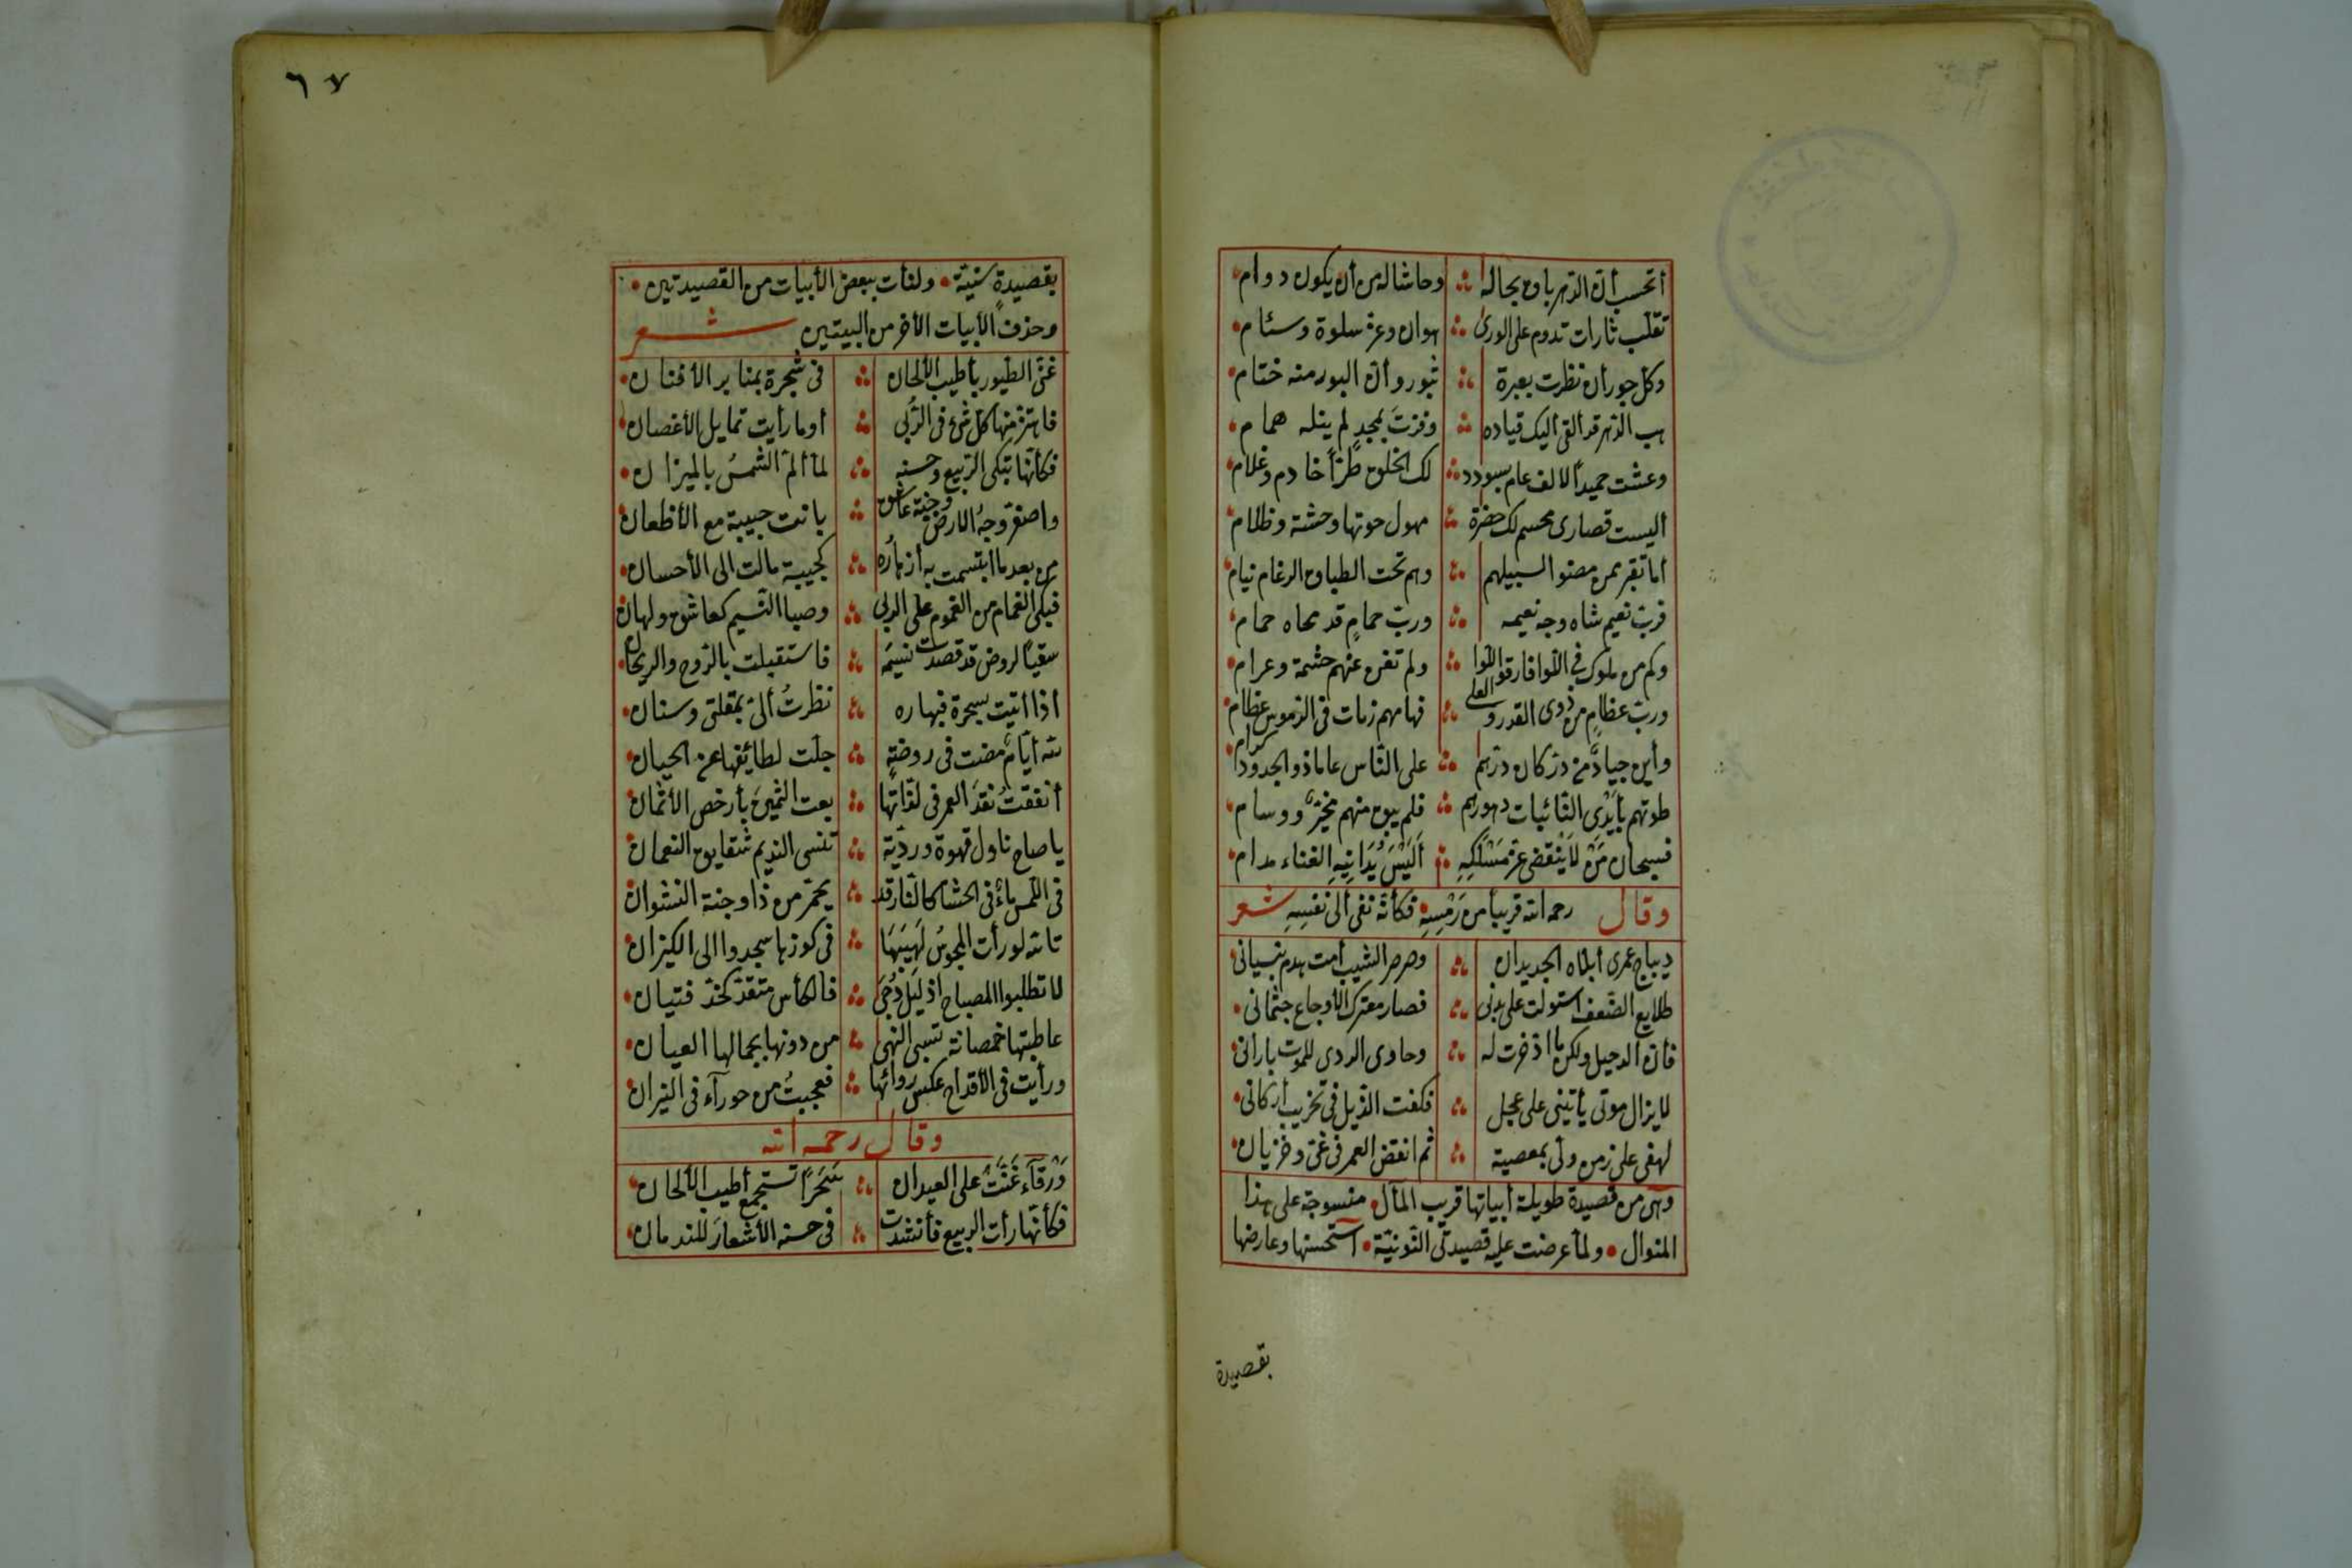 أتحسب أن الدهر باق بحاله ∴ وحاشا له من أن يكون دوام
تقلب ثارات تدوم على الورى ∴ هوان وعز سلوة وسئام
وكل جور أن نظرت بعبرة ∴ ثبور وأن البور منه ختام
هب الدهر قد ألقى اليك قياده ∴ وفزت بمجد لم ينله همام
وعشت حميدا لالف عام بسودد ∴ لك الخلق طرا خادم وغلام
أليست قصارى محسم لك حفرة ∴ مهول حوتها وحشة وظلام
أما تقبر بمن مصنوا لسبيلهم ∴ وهم تحت الطباق الرغام نيام
فرب نعيم شاه وجه نعيمه ∴ ورب حمام قد محاه حمام
وكم من ملوك في اللوا فارقوا اللوا ∴ ولم تغن عنهم حشمة وعرام
ورب عظام من ذوى القدر والعلى ∴ فها مهم زمات فى الرموس عظام
وأين جياد من در كان درهم ∴ على الناس عاماذ والجدود كرام
طوتهم بأيدى النائبات دهورهم ∴ فلم يبق منهم مخبر ووسام
فسبحان من لا ينقضى عز مسلكه ∴ أليس يدانيه الفناء مدام
وقال رحمه الله قريبا من رمسه فكأنه نفى ألى نفسه شعر
ديباج عمرى أبلاه الجديدان ∴ وصرصر الشيب أمت بهدم بنيانى
طلايع الضعف استولت على بدنى ∴ فصار معترك الأوجاع جثمانى
فأن الرحيل ولكن ما اذخرت له ∴ وحادى الردى للموت بارانى
لا يزال موتى يأتينى على عجل ∴ فكفت الذيل فى تخريب أركانى
لهفى على زمن ولى بمعصية ∴ ثم انقض العمر فى غى وخزيان
وهى من قصيدة طويلة أبياتها قريب المآل منسوجة على هذا
المنوال ولما عرضت عليه قصيدتى النونية استحسنها وعارضها
بقصيدة
٦٧
بقصيدة سنية ولنأت ببعض الأبيات من القصيدتين
وحذف الأبيات الأخر من البيتين شعر
غنى الطيور بأطيب الألحان ∴ فى شجرة بمنابر الأفنان
فاهتز منها كل شىء فى الربى ∴ أوما رأيت تمايل الأغصان
فكأنها تبكى الربيع وحسنه ∴ لما ألم الشمس بالميزان
واصفر وجه الارض وجنة عاشق ∴ بانت حبيبة مع الأظعان
من بعد ما ابتسمت به أزهاره ∴ كجيبة مالت الى الأحسان
فبكى الغمام من الغموم على الربى ∴ وصبا النسيم كعاشق ولهان
سقيا لروض قد قصدت نسيمه ∴ فاستقبلت بالروح والريحان
أذا أتيت بسحرة فبهاره ∴ نظرت ألى بمقلتى وسنان
لله أيام مضت فى روضة ∴ جلت لطائفها عن الحبان
أنفقت نقد العمر فى لذاتها ∴ بعت الثمين بأرخص الأثمان
يا صاح ناول قهوة وردية ∴ تنسى النديم شقايق النعمان
فى اللمس ماء فى الحشا كالنار قد ∴ يحمر من ذا وجنة النشوان
تالله لو رأت المجوس لهيبها ∴ فى كوزها سجدوا الى الكيزان
لا تطلبوا المصباح اذ ليل دجى ∴ فالكأس متقد كخد فتيان
عاطيتها خمصانة تسبى النهى ∴ من دونها بجمالها العيان
ورأيت فى الأقداح عكس روائها ∴ فعجبت من حورآء فى النيران
وقال رحمه الله
ورقآء غنت على العيدان ∴ سحرا تستجمع أطيب الألحان
فكأنها رأت الربيع فأنشدت ∴ فى حسنه الأشعار للندمان